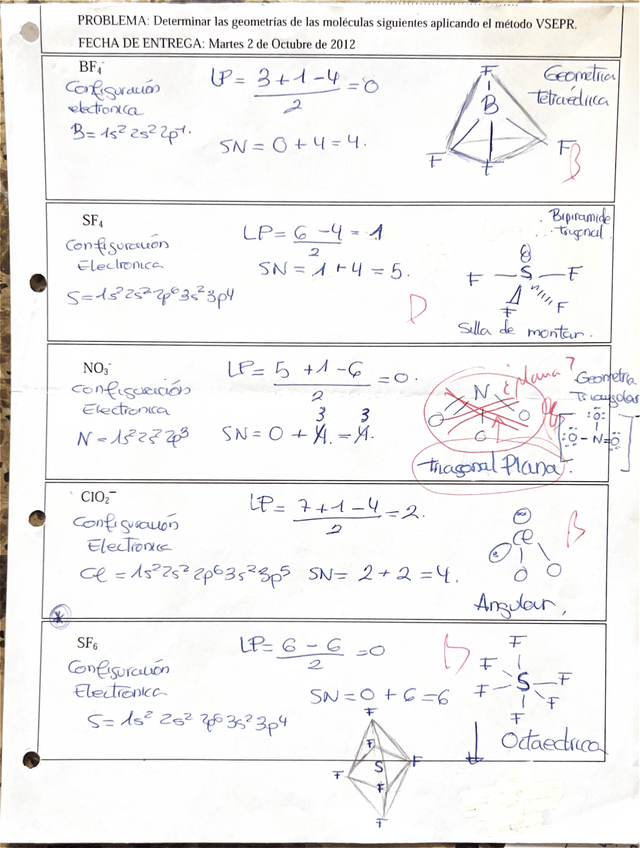 PROBLEMA: Determinar las geometrías de las moléculas siguientes aplicando el método VSEPR.
FECHA DE ENTREGA: Martes 2 de Octubre de 2012
BF₄⁻
Configuración
electronica
B = 1s² 2s² 2p¹.
LP = (3+1-4)/2 = 0
SN = 0 + 4 = 4.
Geometria
Tetraédrica
F
B
F F F
B
SF₄
Configuración
Electronica
S = 1s² 2s² 2p⁶ 3s² 3p⁴
LP = (6-4)/2 = 1
SN = 1 + 4 = 5.
Bipiramide
trigonal
F - S - F
F F
Silla de montar.
NO₃⁻
Configuración
Electronica
N = 1s² 2s² 2p³
LP = (5+1-6)/2 = 0.
3 3
SN = 0 + 4. = 4.
¿plana?
Geometria
Triangular
N
O O
O
O
O - N = O
triagonal Plana.
ClO₂⁻
Configuración
Electronica
Cl = 1s² 2s² 2p⁶ 3s² 3p⁵
LP = (7+1-4)/2 = 2.
SN = 2 + 2 = 4.
Cl
O O
B
Angular,
*
SF₆
Configuración
Electrónica
S = 1s² 2s² 2p⁶ 3s² 3p⁴
LP = (6-6)/2 = 0
SN = 0 + 6 = 6
F
F F
F S F
F
Octaedrica
F
F
F S F
F
F